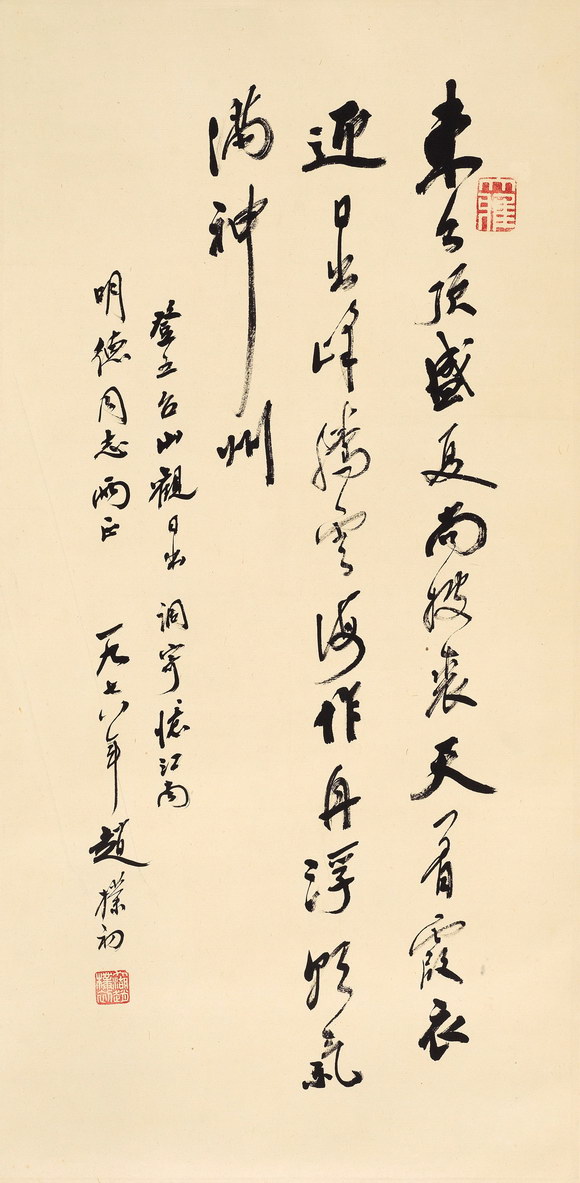 東台頂盛夏尚披裘天着霞衣
迎日出峰騰雲海作舟浮朝氣
滿神州
登五台山觀日出 調寄憶江南
明德同志兩正 一九七八年 趙樸初